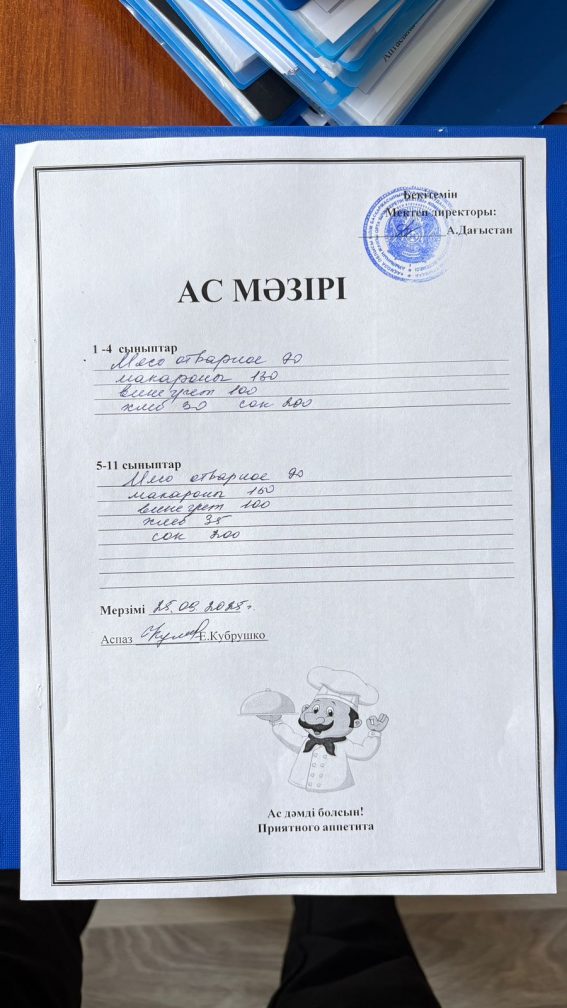 Бекітемін
Мектеп директоры:
А.Дағыстан
АС МӘЗІРІ
1 -4 сыныптар
Мясо отварное 90
макароны 130
винегрет 100
хлеб 30 сок 200
5-11 сыныптар
Мясо отварное 90
макароны 150
винегрет 100
хлеб 35
сок 200
Мерзімі 25.09.2025г.
Аспаз Е.Кубрушко
Ас дәмді болсын!
Приятного аппетита